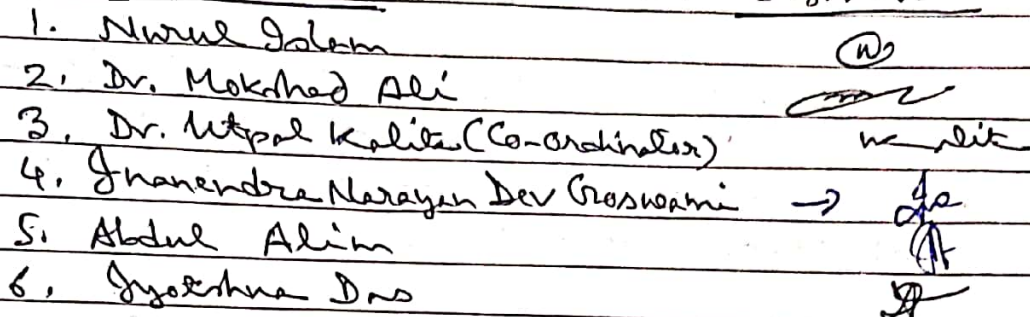 1. Nurul Islam
2. Dr. Mokshed Ali
3. Dr. Utpal Kalita (Co-ordinator)
4. Jnanendra Narayan Dev Goswami →
5. Abdul Alim
6. Jyotshna Das